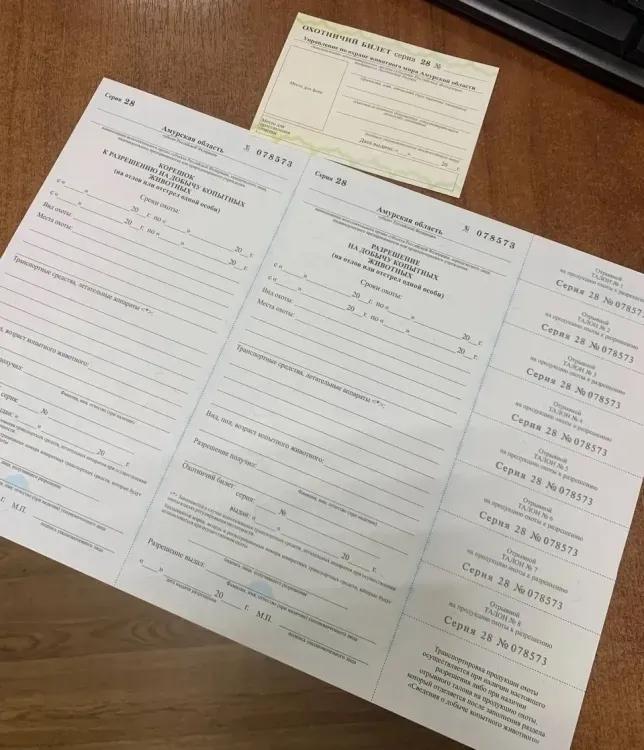 ОХОТНИЧИЙ БИЛЕТ серия 28 №
Управление по охране животного мира Амурской области
Место для фото
Дата выдачи: « » 20 г.
Серия 28
Амурская область
№ 078573
КОРЕШОК
К РАЗРЕШЕНИЮ НА ДОБЫЧУ КОПЫТНЫХ
ЖИВОТНЫХ
(на отлов или отстрел одной особи)
Сроки охоты:
с « » 20 г. по « » 20 г.
с « » 20 г. по « » 20 г.
Вид охоты:
Места охоты:
Транспортные средства, летательные аппараты <*>:
возраст копытного животного:
получил:
Фамилия, имя, отчество (при наличии)
серия: №
выдан: « » 20 г.
г. М.П.
подпись уполномоченного лица
Серия 28
Амурская область
№ 078573
субъект Российской Федерации
РАЗРЕШЕНИЕ
НА ДОБЫЧУ КОПЫТНЫХ
ЖИВОТНЫХ
(на отлов или отстрел одной особи)
Сроки охоты:
с « » 20 г. по « » 20 г.
с « » 20 г. по « » 20 г.
Вид охоты:
Места охоты:
Транспортные средства, летательные аппараты <*>:
Вид, пол, возраст копытного животного:
Разрешение получил:
Фамилия, имя, отчество (при наличии)
Охотничий билет
серия: №
выдан: « » 20 г.
подпись лица, получившего разрешение
Разрешение выдал:
Фамилия, имя, отчество (при наличии) уполномоченного лица
« » 20 г. М.П.
дата выдачи разрешения
подпись уполномоченного лица
Отрывной
ТАЛОН № 1
на продукцию охоты к разрешению
Серия 28 № 078573
Отрывной
ТАЛОН № 2
на продукцию охоты к разрешению
Серия 28 № 078573
Отрывной
ТАЛОН № 3
на продукцию охоты к разрешению
Серия 28 № 078573
Отрывной
ТАЛОН № 4
на продукцию охоты к разрешению
Серия 28 № 078573
Отрывной
ТАЛОН № 5
на продукцию охоты к разрешению
Серия 28 № 078573
Отрывной
ТАЛОН № 6
на продукцию охоты к разрешению
Серия 28 № 078573
Отрывной
ТАЛОН № 7
на продукцию охоты к разрешению
Серия 28 № 078573
Отрывной
ТАЛОН № 8
на продукцию охоты к разрешению
Серия 28 № 078573
Транспортировка продукции охоты
осуществляется при наличии настоящего
разрешения либо при наличии
отрывного талона на продукцию охоты,
который отделяется после заполнения раздела
«Сведения о добыче копытного животного»